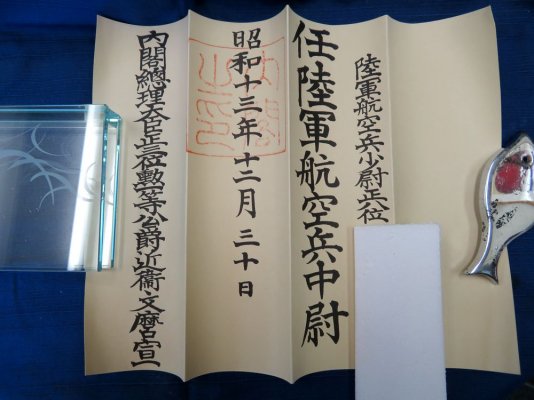 陸軍航空兵少尉正位
任陸軍航空兵中尉
昭和十三年十二月三十日
内閣總理大臣正三位勲一等公爵近衞文麿宣